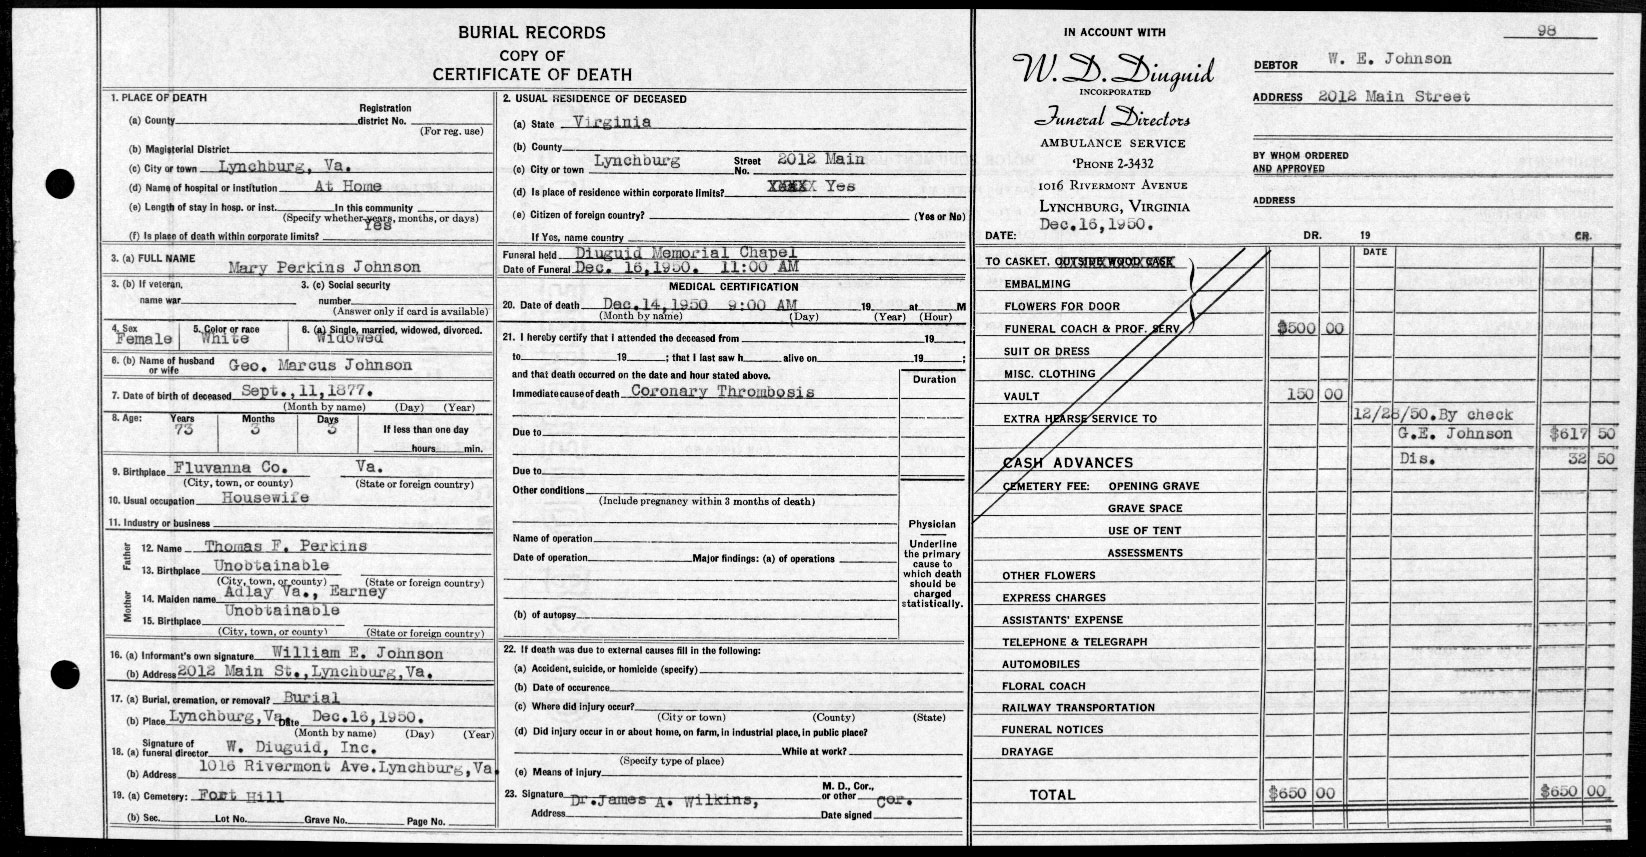 BURIAL RECORDS
COPY OF
CERTIFICATE OF DEATH
1. PLACE OF DEATH
(a) County Registration district No.
(For reg. use)
(b) Magisterial District
(c) City or town Lynchburg, Va.
(d) Name of hospital or institution At Home
(e) Length of stay in hosp. or inst. In this community
(Specify whether years, months, or days)
Yes
(f) Is place of death within corporate limits?
3. (a) FULL NAME Mary Perkins Johnson
3. (b) If veteran, name war 3. (c) Social security number
(Answer only if card is available)
4. Sex 5. Color or race 6. (a) Single, married, widowed, divorced.
Female White Widowed
6. (b) Name of husband or wife Geo. Marcus Johnson
7. Date of birth of deceased Sept., 11, 1877.
(Month by name) (Day) (Year)
8. Age: Years Months Days If less than one day
73 3 3 hours min.
9. Birthplace Fluvanna Co. Va.
(City, town, or county) (State or foreign country)
10. Usual occupation Housewife
11. Industry or business
Father
12. Name Thomas F. Perkins
13. Birthplace Unobtainable
(City, town, or county) (State or foreign country)
Mother
14. Maiden name Adlay Va., Earney
15. Birthplace Unobtainable
(City, town, or county) (State or foreign country)
16. (a) Informant's own signature William E. Johnson
(b) Address 2012 Main St., Lynchburg, Va.
17. (a) Burial, cremation, or removal? Burial
(b) Place Lynchburg, Va. Date Dec. 16, 1950.
(Month by name) (Day) (Year)
18. (a) Signature of funeral director W. Diuguid, Inc.
(b) Address 1016 Rivermont Ave. Lynchburg, Va.
19. (a) Cemetery: Fort Hill
(b) Sec. Lot No. Grave No. Page No.
2. USUAL RESIDENCE OF DECEASED
(a) State Virginia
(b) County
(c) City or town Lynchburg Street No. 2012 Main
(d) Is place of residence within corporate limits? XXXXX Yes
(e) Citizen of foreign country? (Yes or No)
If Yes, name country
Funeral held Diuguid Memorial Chapel
Date of Funeral Dec. 16, 1950. 11:00 AM
MEDICAL CERTIFICATION
20. Date of death Dec. 14, 1950 9:00 AM 19 at M
(Month by name) (Day) (Year) (Hour)
21. I hereby certify that I attended the deceased from 19
to 19 ; that I last saw h alive on 19 ;
and that death occurred on the date and hour stated above.
Duration
Immediate cause of death Coronary Thrombosis
Due to
Due to
Other conditions
(Include pregnancy within 3 months of death)
Name of operation
Date of operation Major findings: (a) of operations
(b) of autopsy
Physician
Underline
the primary
cause to
which death
should be
charged
statistically.
22. If death was due to external causes fill in the following:
(a) Accident, suicide, or homicide (specify)
(b) Date of occurence
(c) Where did injury occur?
(City or town) (County) (State)
(d) Did injury occur in or about home, on farm, in industrial place, in public place?
While at work?
(Specify type of place)
(e) Means of injury
23. Signature Dr. James A. Wilkins, M. D., Cor., or other Cor.
Address Date signed
98
IN ACCOUNT WITH
W. D. Diuguid
INCORPORATED
Funeral Directors
AMBULANCE SERVICE
'PHONE 2-3432
1016 RIVERMONT AVENUE
LYNCHBURG, VIRGINIA
DATE: Dec. 16, 1950.
DEBTOR W. E. Johnson
ADDRESS 2012 Main Street
BY WHOM ORDERED
AND APPROVED
ADDRESS
DR. 19 CR.
DATE
TO CASKET, OUTSIDE WOOD CASK
EMBALMING
FLOWERS FOR DOOR
FUNERAL COACH & PROF. SERV. $500 00
SUIT OR DRESS
MISC. CLOTHING
VAULT 150 00
EXTRA HEARSE SERVICE TO 12/28/50. By check
G.E. Johnson $617 50
CASH ADVANCES Dis. 32 50
CEMETERY FEE: OPENING GRAVE
GRAVE SPACE
USE OF TENT
ASSESSMENTS
OTHER FLOWERS
EXPRESS CHARGES
ASSISTANTS' EXPENSE
TELEPHONE & TELEGRAPH
AUTOMOBILES
FLORAL COACH
RAILWAY TRANSPORTATION
FUNERAL NOTICES
DRAYAGE
TOTAL $650 00 $650 00